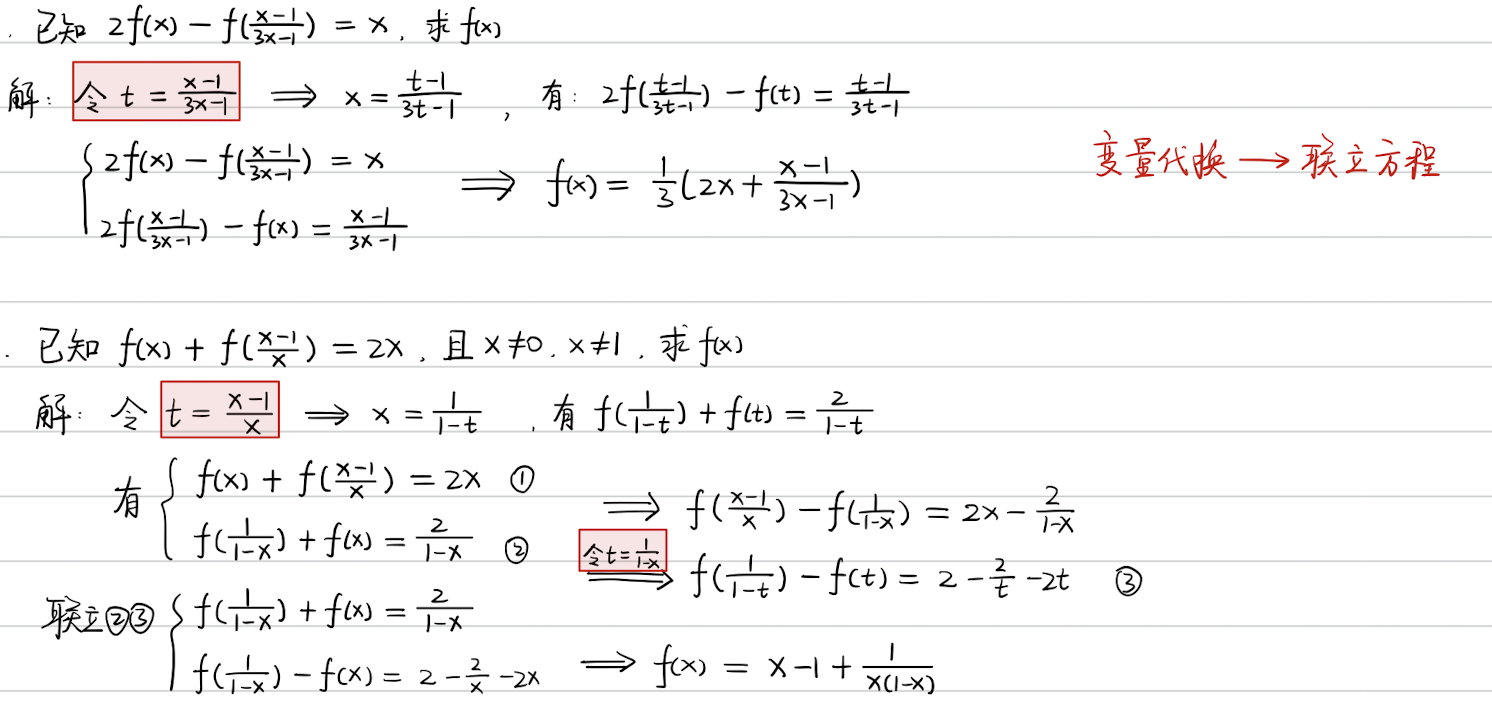 . 已知 2f(x) − f((x−1)/(3x−1)) = x, 求 f(x)
解: 令 t = (x−1)/(3x−1) ⟹ x = (t−1)/(3t−1), 有: 2f((t−1)/(3t−1)) − f(t) = (t−1)/(3t−1)
{ 2f(x) − f((x−1)/(3x−1)) = x
2f((x−1)/(3x−1)) − f(x) = (x−1)/(3x−1)
⟹ f(x) = 1/3(2x + (x−1)/(3x−1))
变量代换 → 联立方程
. 已知 f(x) + f((x−1)/x) = 2x, 且 x≠0, x≠1, 求 f(x)
解: 令 t = (x−1)/x ⟹ x = 1/(1−t), 有 f(1/(1−t)) + f(t) = 2/(1−t)
有 { f(x) + f((x−1)/x) = 2x ①
f(1/(1−x)) + f(x) = 2/(1−x) ②
⟹ f((x−1)/x) − f(1/(1−x)) = 2x − 2/(1−x)
令 t = 1/(1−x) ⟹ f(1/(1−t)) − f(t) = 2 − 2/t − 2t ③
联立②③ { f(1/(1−x)) + f(x) = 2/(1−x)
f(1/(1−x)) − f(x) = 2 − 2/x − 2x
⟹ f(x) = x − 1 + 1/(x(1−x))